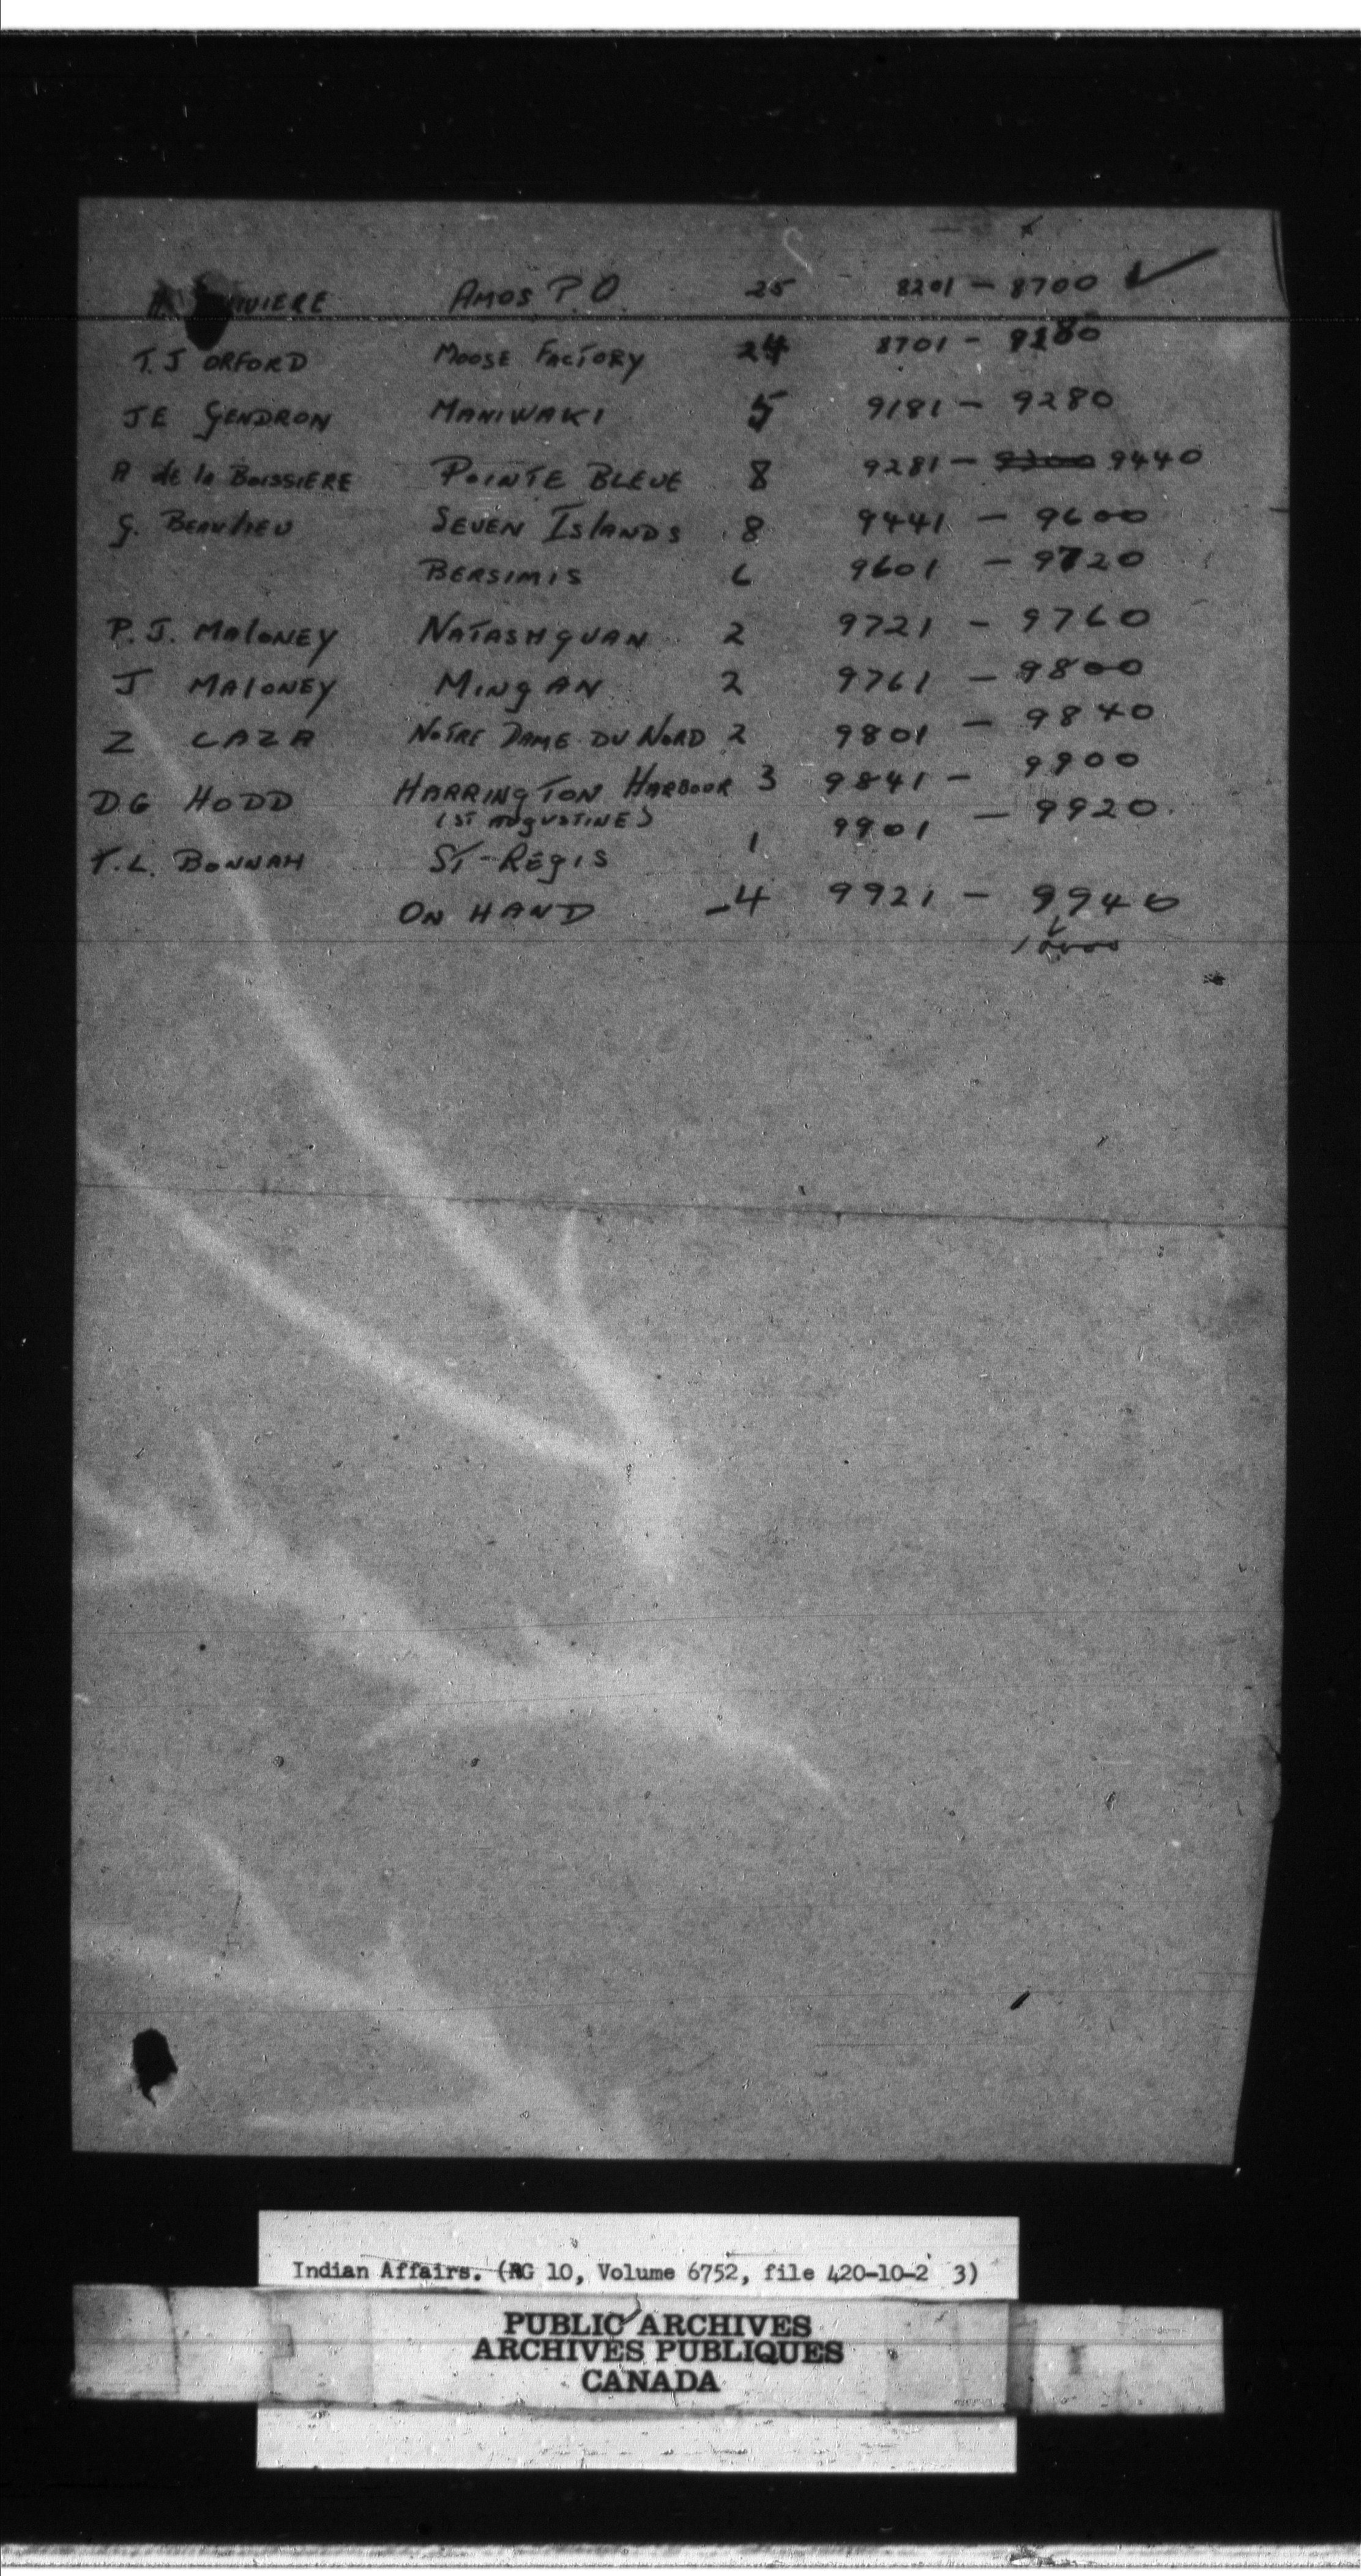 H. IVIERE AMOS P.O. 25 8201 - 8700 ✓
T.J ORFORD MOOSE FACTORY 24 8701 - 9180
JE GENDRON MANIWAKI 5 9181 - 9280
A de la BOISSIERE POINTE BLEUE 8 9281 - 9300 9440
G. BEAULIEU SEVEN ISLANDS 8 9441 - 9600
BERSIMIS 6 9601 - 9720
P.J. MALONEY NATASHQUAN 2 9721 - 9760
J MALONEY MINGAN 2 9761 - 9800
Z CAZA NOTRE DAME DU NORD 2 9801 - 9840
DG HODD HARRINGTON HARBOUR 3 9841 - 9900
(ST AUGUSTINE)
T.L. BONNAH ST-REGIS 1 9901 - 9920
ON HAND -4 9921 - 9940
10000
Indian Affairs. (RG 10, Volume 6752, file 420-10-2 3)
PUBLIC ARCHIVES
ARCHIVES PUBLIQUES
CANADA